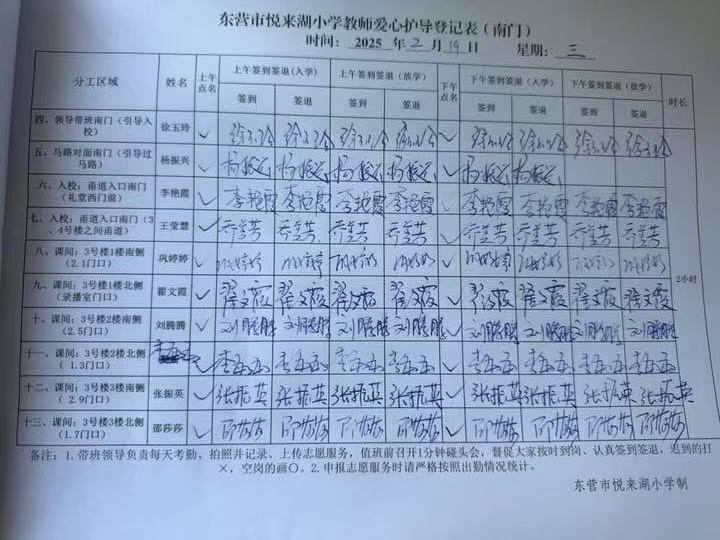 东营市悦来湖小学教师爱心护导登记表（南门）
时间：2025 年 2 月 19 日 星期：三
分工区域 姓名 上午点名 上午签到签退(入学) 上午签到签退（放学） 下午点名 下午签到签退（入学） 下午签到签退（放学） 时长
签到 签退 签到 签退 签到 签退 签到 签退
四、领导带班南门（引导入校） 徐玉玲 ✓ 徐玉玲 徐玉玲 徐玉玲 徐玉玲 ✓ 徐玉玲 徐玉玲 徐玉玲 徐玉玲
五、马路对面南门（引导过马路） 杨振兴 ✓ 杨振兴 杨振兴 杨振兴 杨振兴 ✓ 杨振兴 杨振兴
六、入校：甬道入口南门（礼堂西门前） 李艳霞 ✓ 李艳霞 李艳霞 李艳霞 李艳霞 ✓ 李艳霞 李艳霞 李艳霞 李艳霞
七、入校：甬道入口南门（3、4号楼之间甬道） 王莹慧 ✓ ✓
八、课间：3号楼1楼南侧（2.1门口） 巩婷婷 ✓ ✓
2小时
九、课间：3号楼1楼北侧（录播室门口） 翟文霞 ✓ 翟文霞 翟文霞 翟文霞 翟文霞 ✓ 翟文霞 翟文霞 翟文霞 翟文霞
十、课间：3号楼2楼南侧（2.5门口） 刘腾腾 ✓ 刘腾腾 刘腾腾 刘腾腾 刘腾腾 ✓ 刘腾腾 刘腾腾 刘腾腾 刘腾腾
十一、课间：3号楼2楼北侧（1.3门口） ✓ ✓
十二、课间：3号楼3楼南侧（2.9门口） 张振英 ✓ 张振英 张振英 张振英 张振英 ✓ 张振英 张振英 张振英 张振英
十三、课间：3号楼3楼北侧（1.7门口） 邵莎莎 ✓ 邵莎莎 邵莎莎 邵莎莎 邵莎莎 ✓ 邵莎莎 邵莎莎 邵莎莎 邵莎莎
备注：1.带班领导负责每天考勤、拍照并记录、上传志愿服务，值班前召开1分钟碰头会，督促大家按时到岗、认真签到签退，迟到的打
×，空岗的画〇。2.申报志愿服务时请严格按照出勤情况统计。
东营市悦来湖小学制